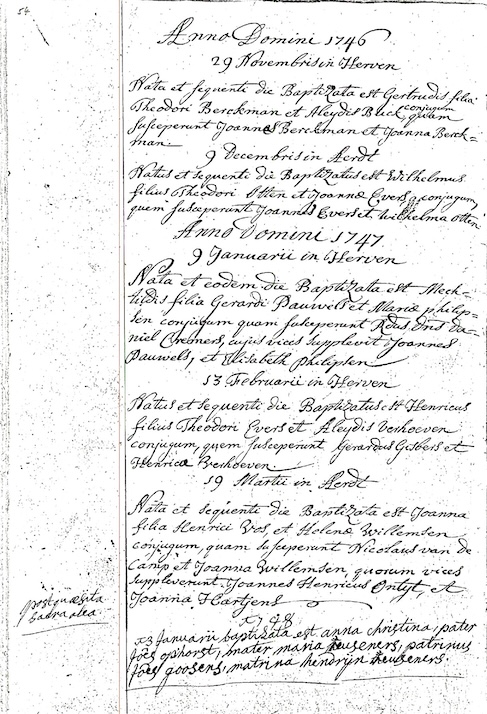 54
Anno Domini 1746
29 Novembris in Herven
Nata et sequenti die Baptizata est Gertrudis filia
Theodori Berckman et Aleydis Buck conjugum quam
susceperunt Joannes Berckman et Joanna Berck=
man.
9 Decembris in Aerdt
Natus et sequenti die Baptizatus est Wilhelmus
filius Theodori Otten et Joannæ Evers conjugum,
quem susceperunt Joannes Evers et Wilhelma Otten
Anno Domini 1747
9 Januarii in Herven
Nata et eodem die Baptizata est Mech=
tildis filia Gerardi Pauwels et Mariæ philip=
sen conjugum quam susceperunt Rdus Dns Da=
niel Cremers, cujus vices supplevit Joannes
Pauwels, et Elisabeth Philipsen
13 Februarii in Herven
Natus et sequenti die Baptizatus est Henricus
filius Theodori Evers et Aleydis Verhoeven
conjugum, quem susceperunt Gerardus Gisbers et
Henrica Verhoeven
19 Martii in Aerdt
Nata et sequenti die Baptizata est Joanna
filia Henrici Vos, et Helenæ Willemsen
conjugum, quam susceperunt Nicolaus van de
Camp et Joanna Willemsen, quorum vices
suppleverunt Joannes Henricus et
Joanna Hartjens
postquæsita
1748
23 Januarii baptizata est anna christina, pater
Joes ophorst, mater maria heuseners, patrinus
Joes goosens, matrina hendrijn heuseners.